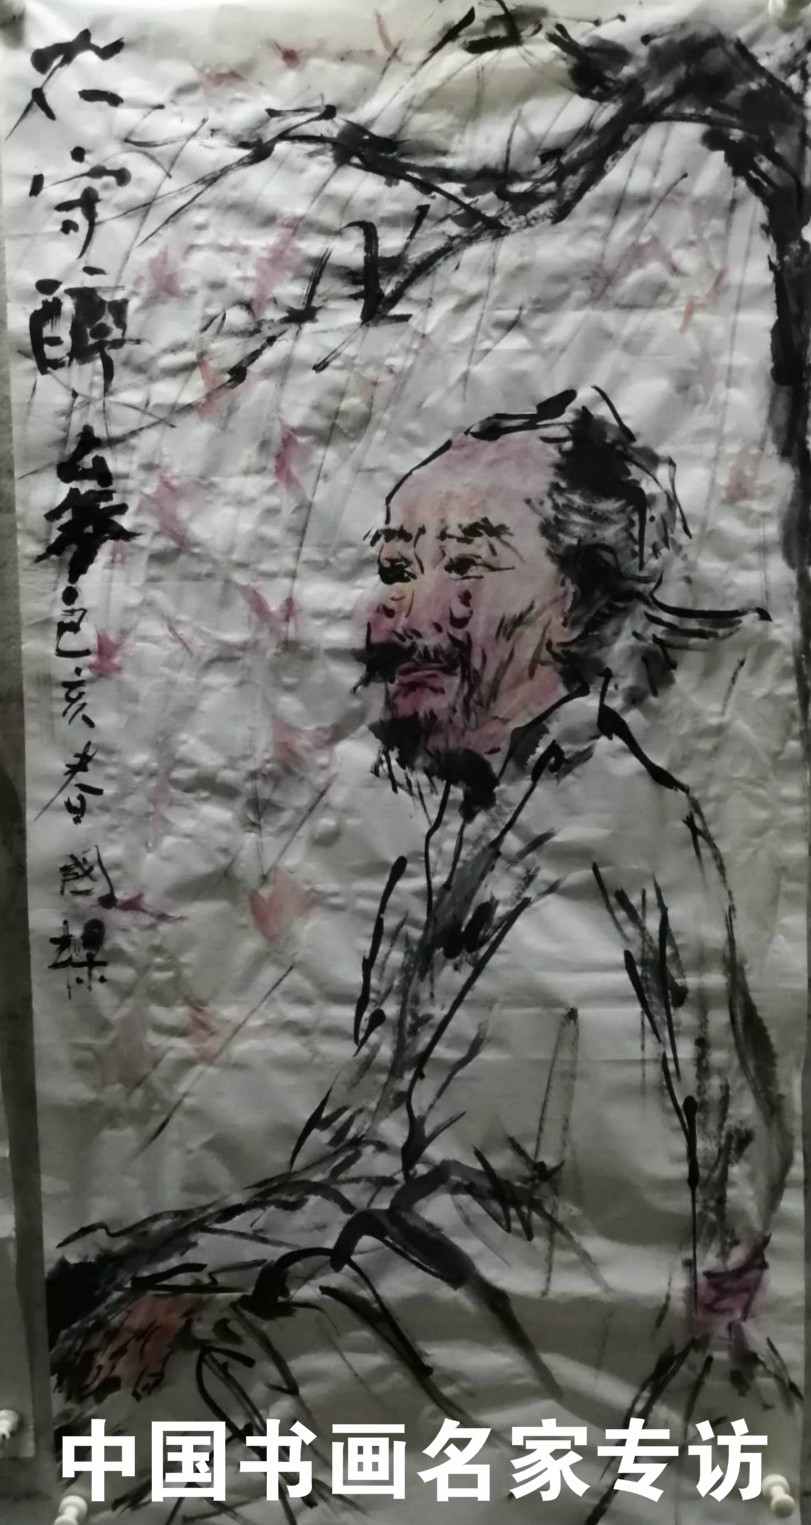 太守醉 己亥春國
中国书画名家专访